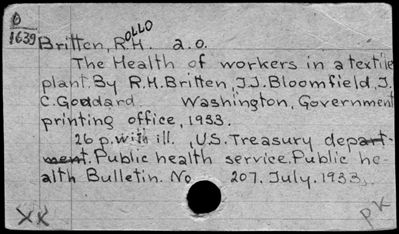 O
1639
OLLO
Britten, R.H. a.o.
The Health of workers in a textile
plant. By R.H. Britten, J.J. Bloomfield, J.
C. Goddard. Washington, Government
printing office, 1933.
26 p. with ill. U.S. Treasury depart-
ment. Public health service. Public he-
alth Bulletin. No 207. July. 1933.
XX
PK